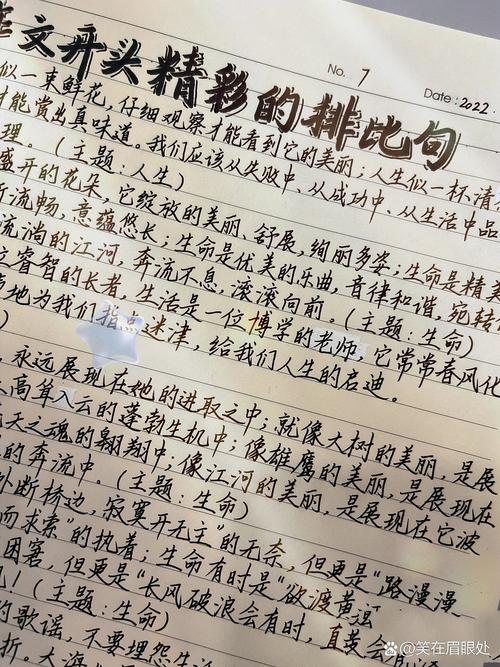 作文开头精彩的排比句
No. 7
Date: 2022.
似一束鲜花,仔细观察才能看到它的美丽;人生似一杯清
才能赏出真味道。我们应该从失败中、从成功中、从生活中品
理。(主题:人生)
盛开的花朵,它绽放的美丽、舒展,绚丽多姿;生命是精美
流畅,意蕴悠长;生命是优美的乐曲,音律和谐,宛转
流淌的江河,奔流不息,滚滚向前。(主题:生命)
睿智的长者,生活是一位博学的老师,它常常春风化
地为我们指点迷津,给我们人生的启迪。
)
永远展现在她的进取之中;就像大树的美丽,是展
高耸入云的蓬勃生机中;像雄鹰的美丽,是展现在
天之魂的翱翔中,像江河的美丽,是展现在它波
的奔流中。(主题:生命)
外断桥边,寂寞开无主”的无奈,但更是“路漫漫
而求索”的执着;生命有时是“欲渡黄河
困窘,但更是“长风破浪会有时,直
!(主题:生命)
的歌谣,不要埋怨生
折。大海
百度 @笑在眉眼处